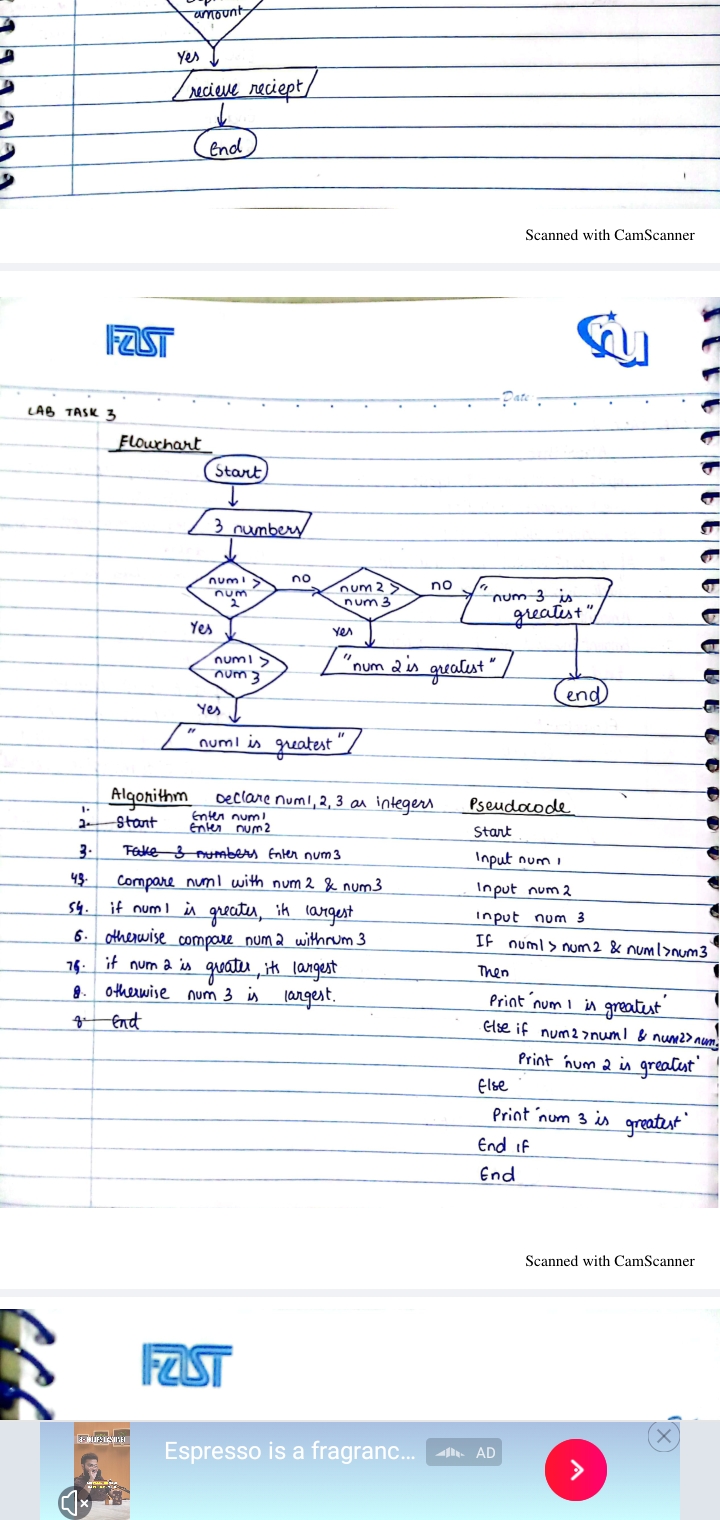 amount
Yes
recieve reciept
End
Scanned with CamScanner
FAST
nu
Date
LAB TASK 3
Flowchart
Start
3 numbers
num1 > num 2
no
num 2 > num 3
no
"num 3 is greatest"
Yes
yes
num1 > num 3
"num 2 is greatest"
end
Yes
"num1 is greatest"
Algorithm Declare num1, 2, 3 as integers
1.
2. Start Enter num1
Enter num2
3. Take 3 numbers Enter num3
4. Compare num1 with num2 & num3
5. if num1 is greater, its largest
6. otherwise compare num2 with num 3
7. if num 2 is greater, its largest
8. otherwise num 3 is largest.
End
Pseudocode
Start
Input num 1
Input num 2
input num 3
If num1 > num2 & num1>num3
Then
Print 'num 1 is greatest'
Else if num2>num1 & num2>num
Print 'num 2 is greatest'
Else
Print 'num 3 is greatest'
End if
End
Scanned with CamScanner
FAST
Espresso is a fragranc...
AD